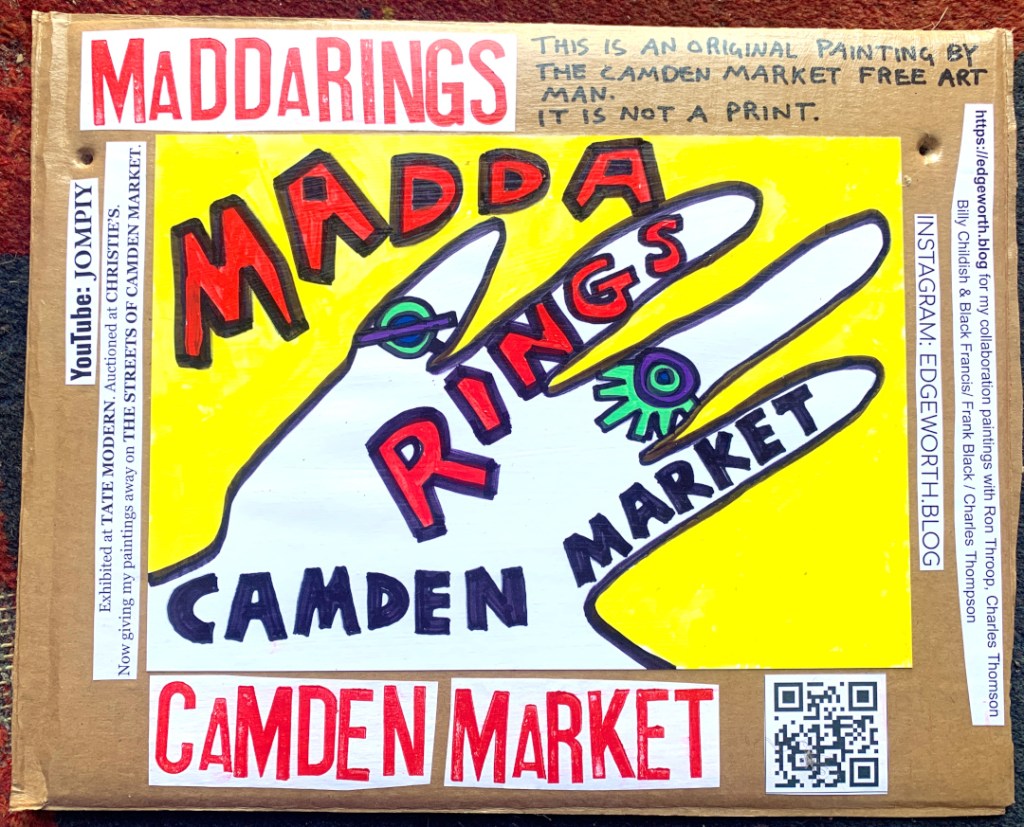 MADDARINGS
THIS IS AN ORIGINAL PAINTING BY
THE CAMDEN MARKET FREE ART
MAN.
IT IS NOT A PRINT.
YouTube: JOMPIY
Exhibited at TATE MODERN. Auctioned at CHRISTIE'S.
Now giving my paintings away on THE STREETS OF CAMDEN MARKET.
MADDA
RINGS
CAMDEN MARKET
INSTAGRAM: EDGEWORTH.BLOG
https://edgeworth.blog for my collaboration paintings with Ron Throop, Charles Thomson
Billy Childish & Black Francis/ Frank Black / Charles Thompson
CAMDEN MARKET